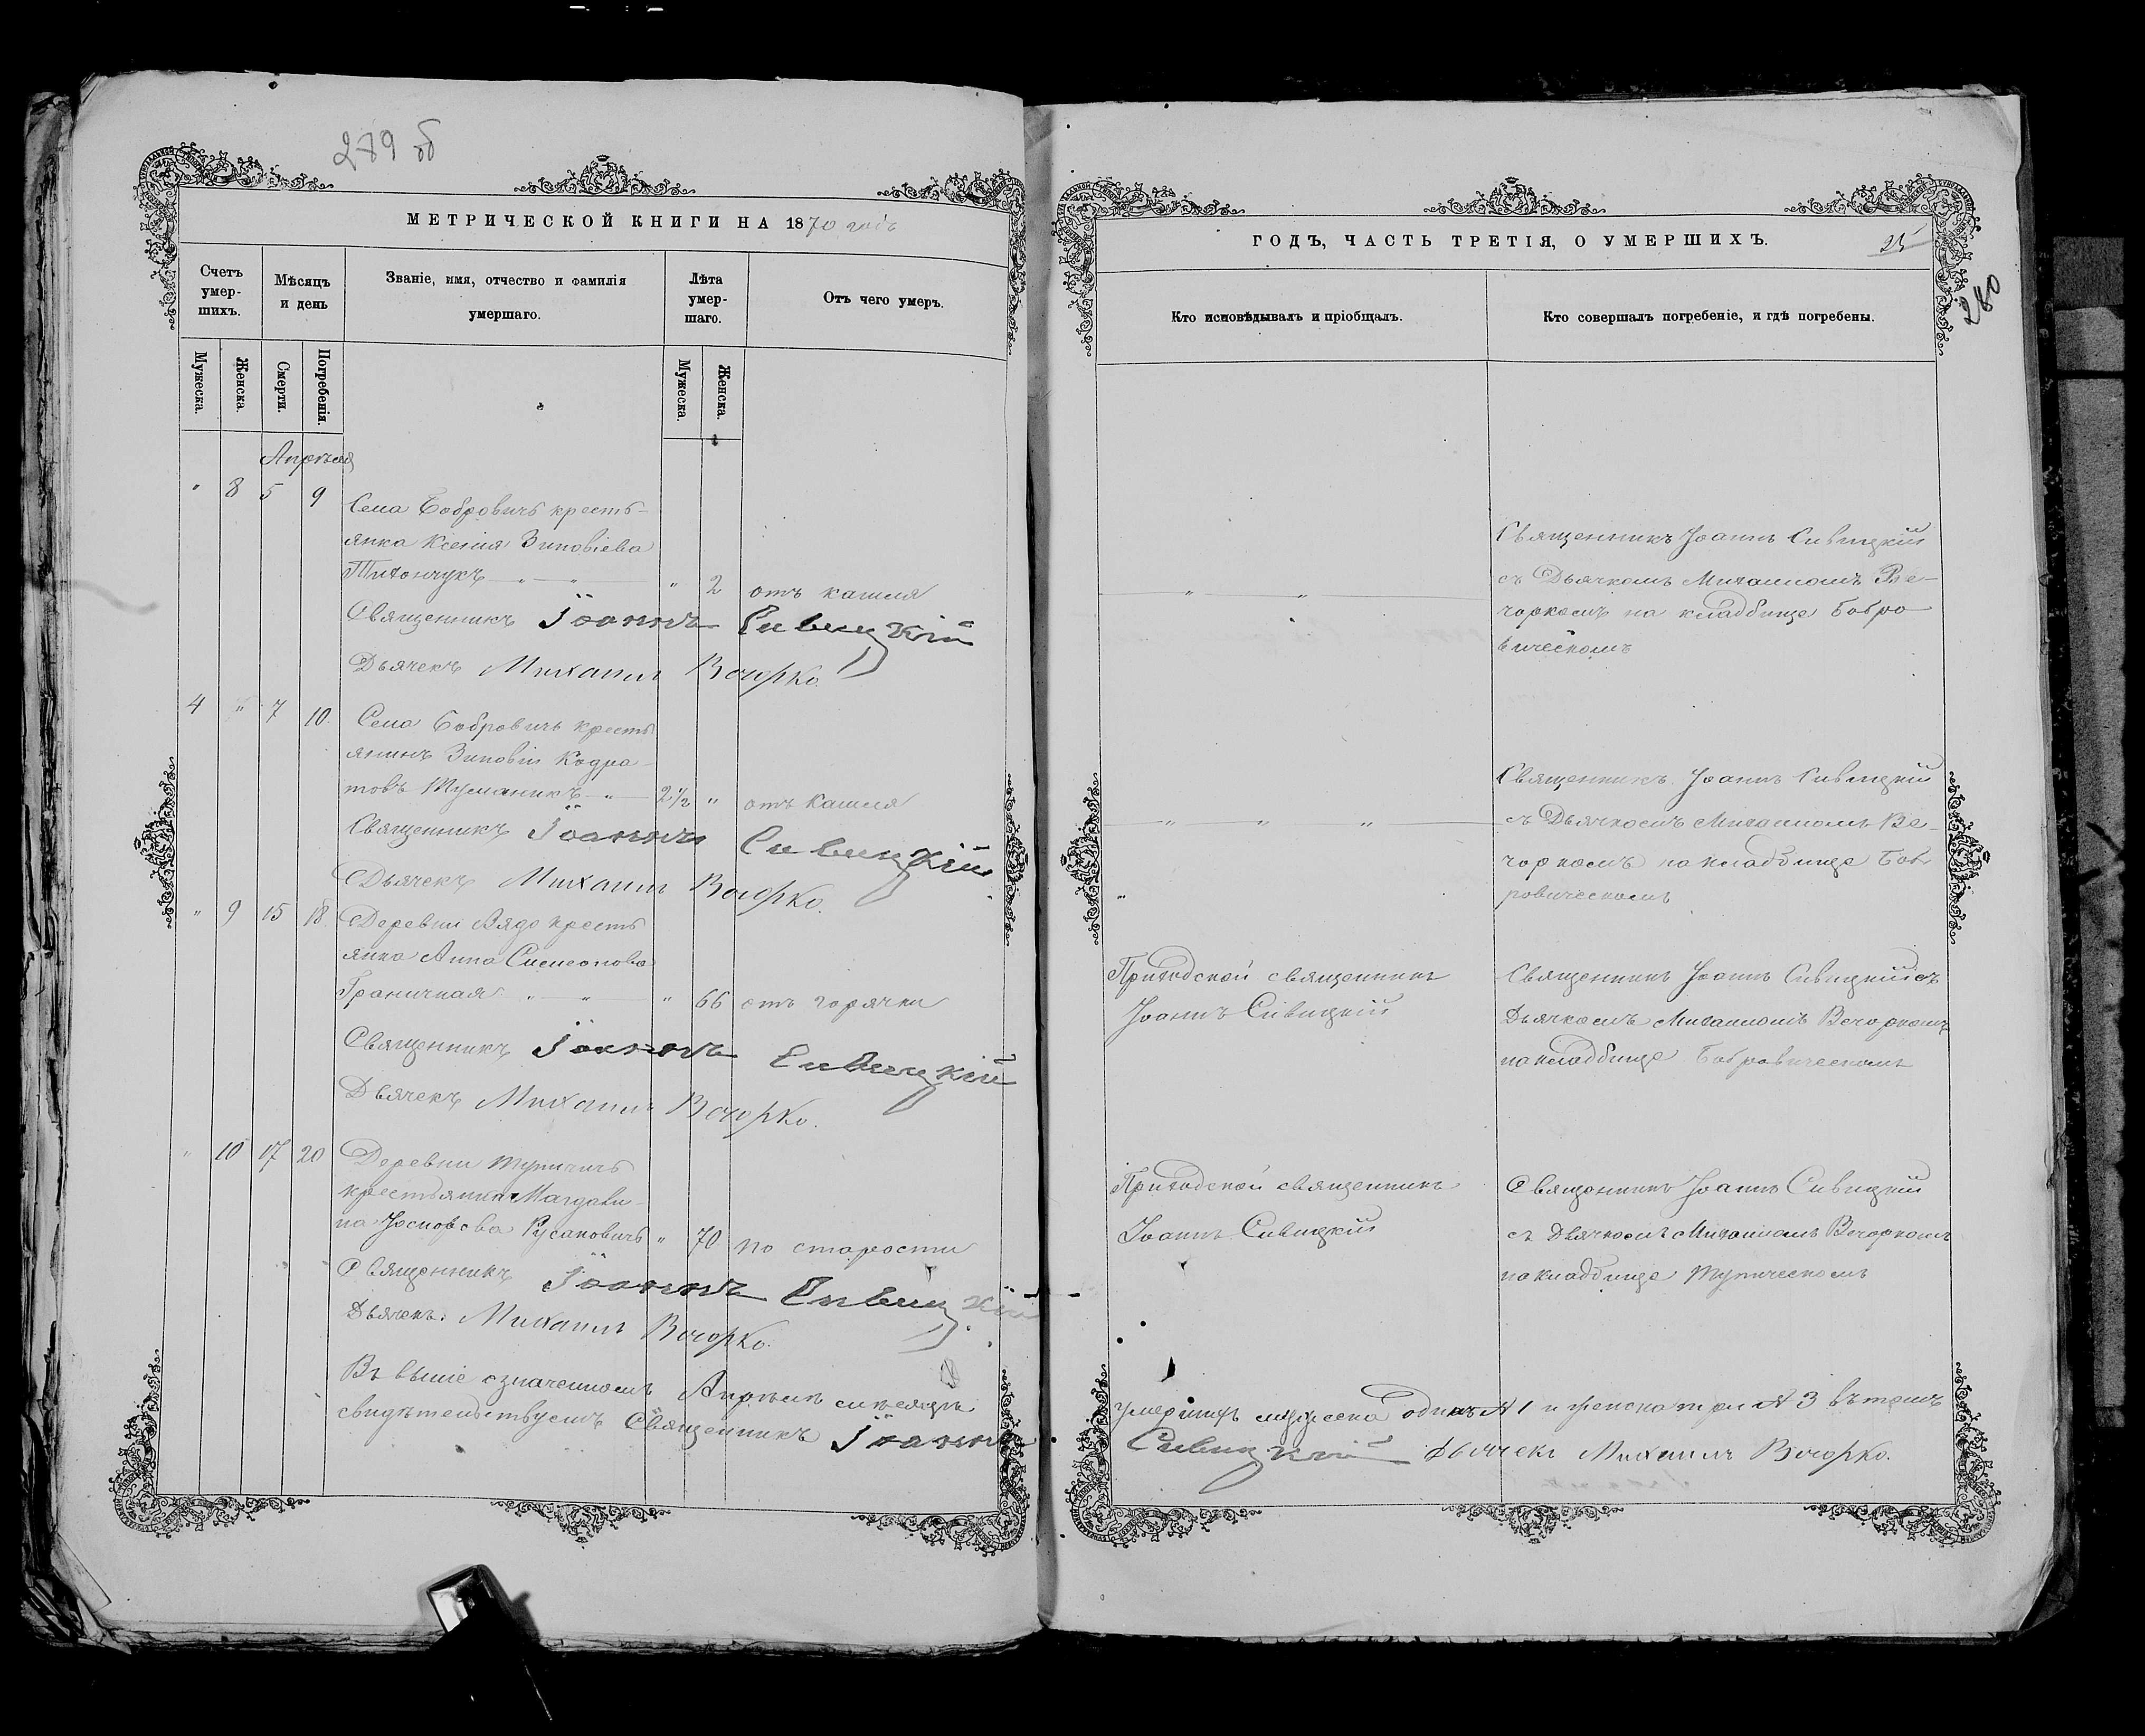 279 об
МЕТРИЧЕСКОЙ КНИГИ НА 1870 годъ
Счетъ умер-шихъ.
Мѣсяцъ и день
Званіе, имя, отчество и фамилія умершаго.
Лѣта умер-шаго.
Отъ чего умеръ.
Мужеска.
Женска.
Смерти.
Погребенія.
Мужеска.
Женска.
Апрѣля
" 8 5 9
Села Бобровичъ кресть-
янка Ксенія Зиновіева
Тихончукъ — " — " — " 2 отъ кашля
Священникъ Іоаннъ Сивицкій
Дьячекъ Михаилъ Вечорко.
4 " 7 10.
Села Бобровичъ кресть
янинъ Зиновій Кодра-
товъ Туманикъ — " — 2½ " отъ кашля
Священникъ Іоаннъ Сивицкій
Дьячекъ Михаилъ Вечорко.
" 9 15 18.
Деревни Вядо кресть
янка Анна Симеонова
Граничная " — " — " 66 отъ горячки
Священникъ Іоаннъ Сивицкій
Дьячекъ Михаилъ Вечорко.
" 10 17 20
Деревни Тупичичъ
крестьянка Магдали-
на Іосифова Русановичъ " 70 по старости
Священникъ Іоаннъ Сивицкій
Дьячекъ Михаилъ Вечорко.
Въ выше означенномъ Апрѣлѣ мѣсяцѣ
свидѣтельствуемъ Священникъ Іоаннъ
ГОДЪ, ЧАСТЬ ТРЕТІЯ, О УМЕРШИХЪ.
25
280
Кто исповѣдывалъ и пріобщалъ.
Кто совершалъ погребеніе, и гдѣ погребены.
Священникъ Іоаннъ Сивицкій
съ Дьячкомъ Михаиломъ Ве-
чоркомъ на кладбище Бобро
вическомъ
Священникъ Іоаннъ Сивицкій
съ Дьячкомъ Михаиломъ Ве-
чоркомъ на кладбище Боб-
ровическомъ
Приходской священникъ
Іоаннъ Сивицкій
Священникъ Іоаннъ Сивицкій съ
Дьячкомъ Михаиломъ Вечоркомъ
на кладбище Бобровическомъ
Приходской священникъ
Іоаннъ Сивицкій
Священникъ Іоаннъ Сивицкій
съ Дьячкомъ Михаиломъ Вечоркомъ
на кладбище Тупическомъ
умершихъ мужеска одинъ 1 и женска три 3 въ томъ
Сивицкій Дьячекъ Михаилъ Вечорко.